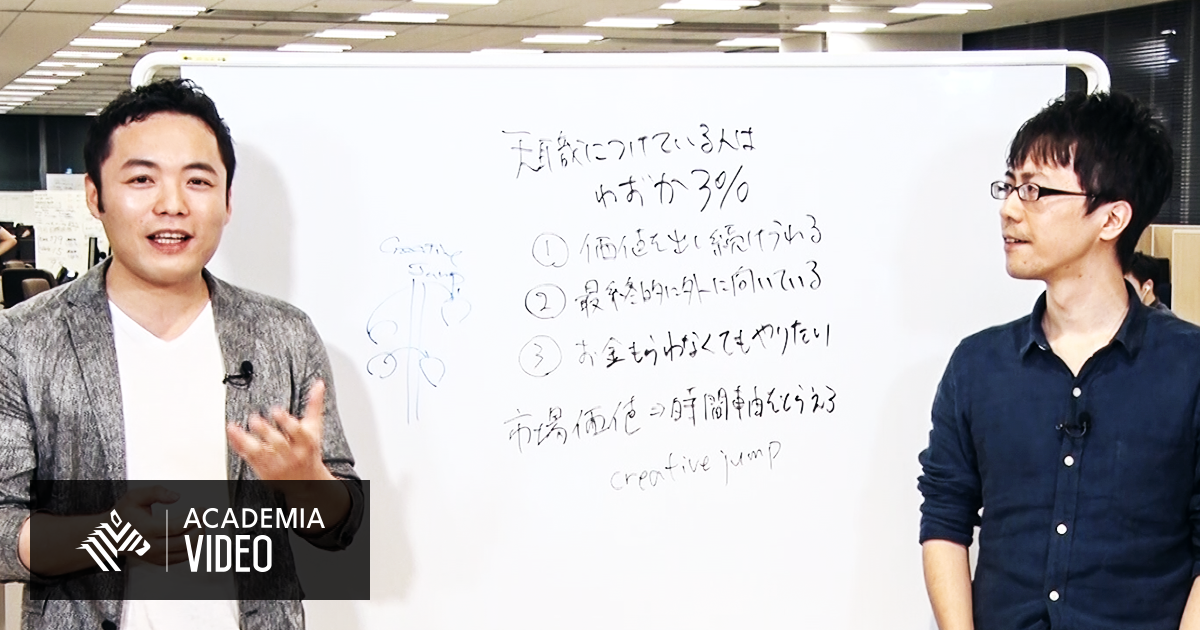 天職につけている人は
わずか3%
① 価値を出し続けられる
② 最終的に外に向いている
③ お金もらわなくてもやりたい
市場価値⇒時間軸をとらえる
creative jump
Creative
Jump
ACADEMIA
VIDEO